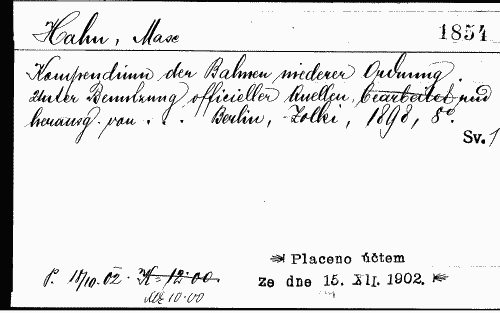 Hahn, Max
1854
Kompendium der Bahnen niederer Ordnung.
Unter Benutzung officieller Quellen, bearbeitet und
herausg. von . . . Berlin, Zolki, 1898, 8°.
Sv. 1
P. 18/10. 02. K = 12·00.
Mk 10·00
Placeno účtem
ze dne 15. XII. 1902.